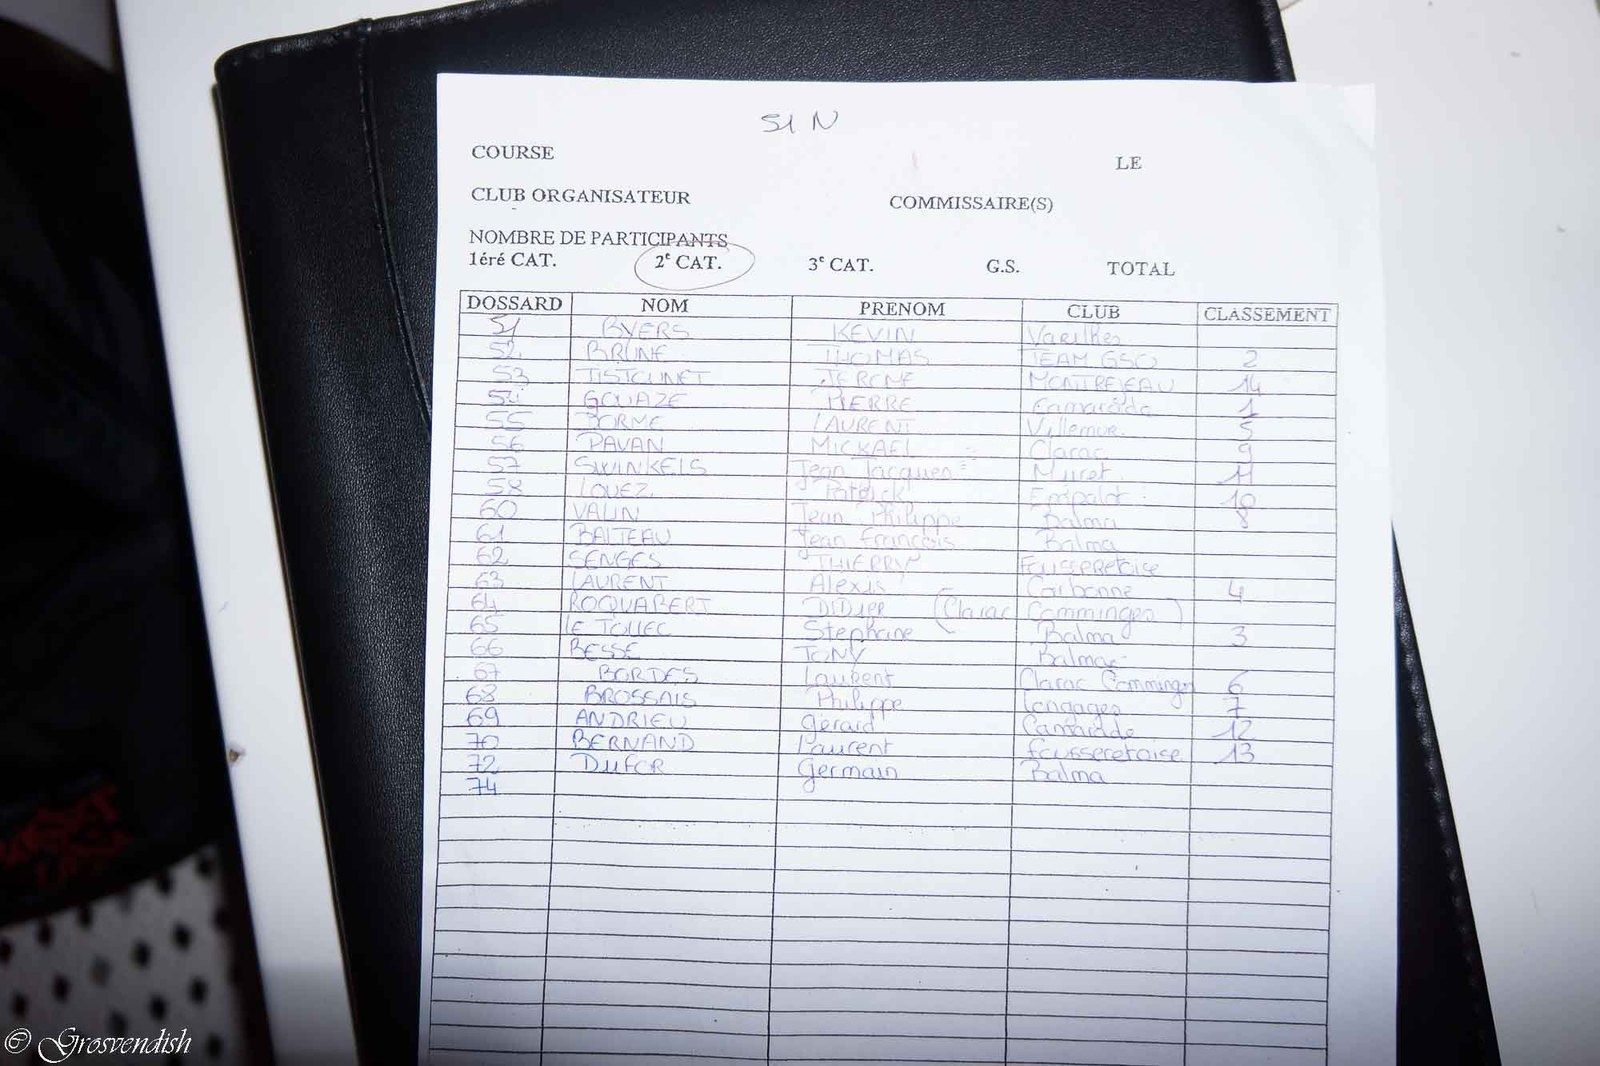 S1 N
COURSE LE
CLUB ORGANISATEUR COMMISSAIRE(S)
NOMBRE DE PARTICIPANTS
1éré CAT. 2e CAT. 3e CAT. G.S. TOTAL
DOSSARD NOM PRENOM CLUB CLASSEMENT
51 BYERS KEVIN Varilhes
52 BRUNE THOMAS TEAM GSO 2
53 TISTOUNET JEROME MONTREJEAU 14
54 GOUAZE PIERRE Camarade 1
55 BORME LAURENT Villemur 5
56 PAVAN MICKAEL Clarac 9
57 SWINKELS Jean Jacques Muret 11
58 LOUEZ Patrick Empalot 10
60 VALIN Jean Philippe Balma 8
61 BATTEAU Jean François Balma
62 SENGES THIERRY Fousseretoise
63 LAURENT Alexis Carbonne 4
64 ROQUABERT DIDIER (Clarac Comminges)
65 LE TOUEC Stephane Balma 3
66 BESSE TONY Balma
67 BORDES Laurent Clarac Comming 6
68 BROSSAIS Philippe Longages 7
69 ANDRIEU Gérard Camarade 12
70 BERNAND Laurent fousseretoise 13
72 DUFOR Germain Balma
74
© Grosvendish